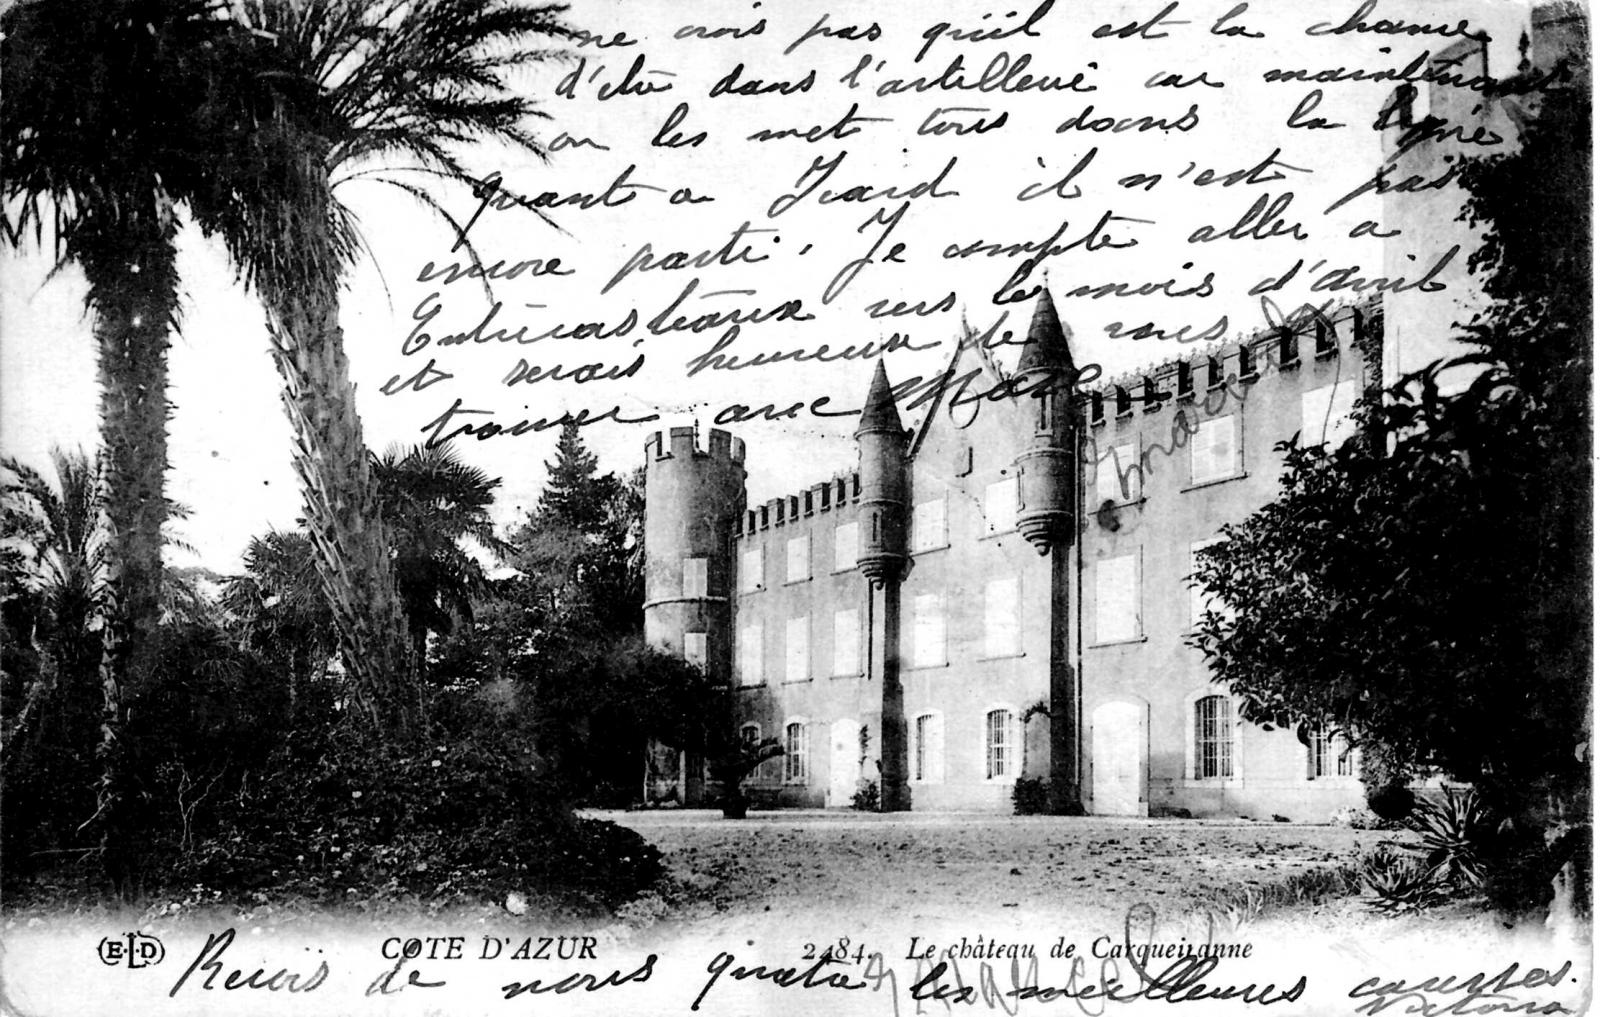 ne crois pas qu'il est la chance
d'etre dans l'artillerie car maintenant
on les met tous dans la ligne
quant a Icard il n'est pas
encore parti. Je compte aller a
Entrecasteaux vers le mois d'avril
et serais heureux de vous
trouver avec
E.L.D
COTE D'AZUR 2484. Le château de Carqueiranne
Recois de nous quatre les meilleures causses.
Victoria